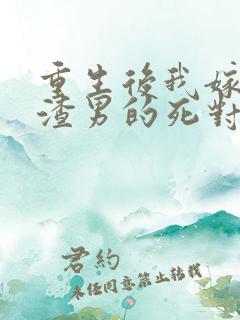 重生後我嫁
渣男的死對
君約
未任同意禁止轉載